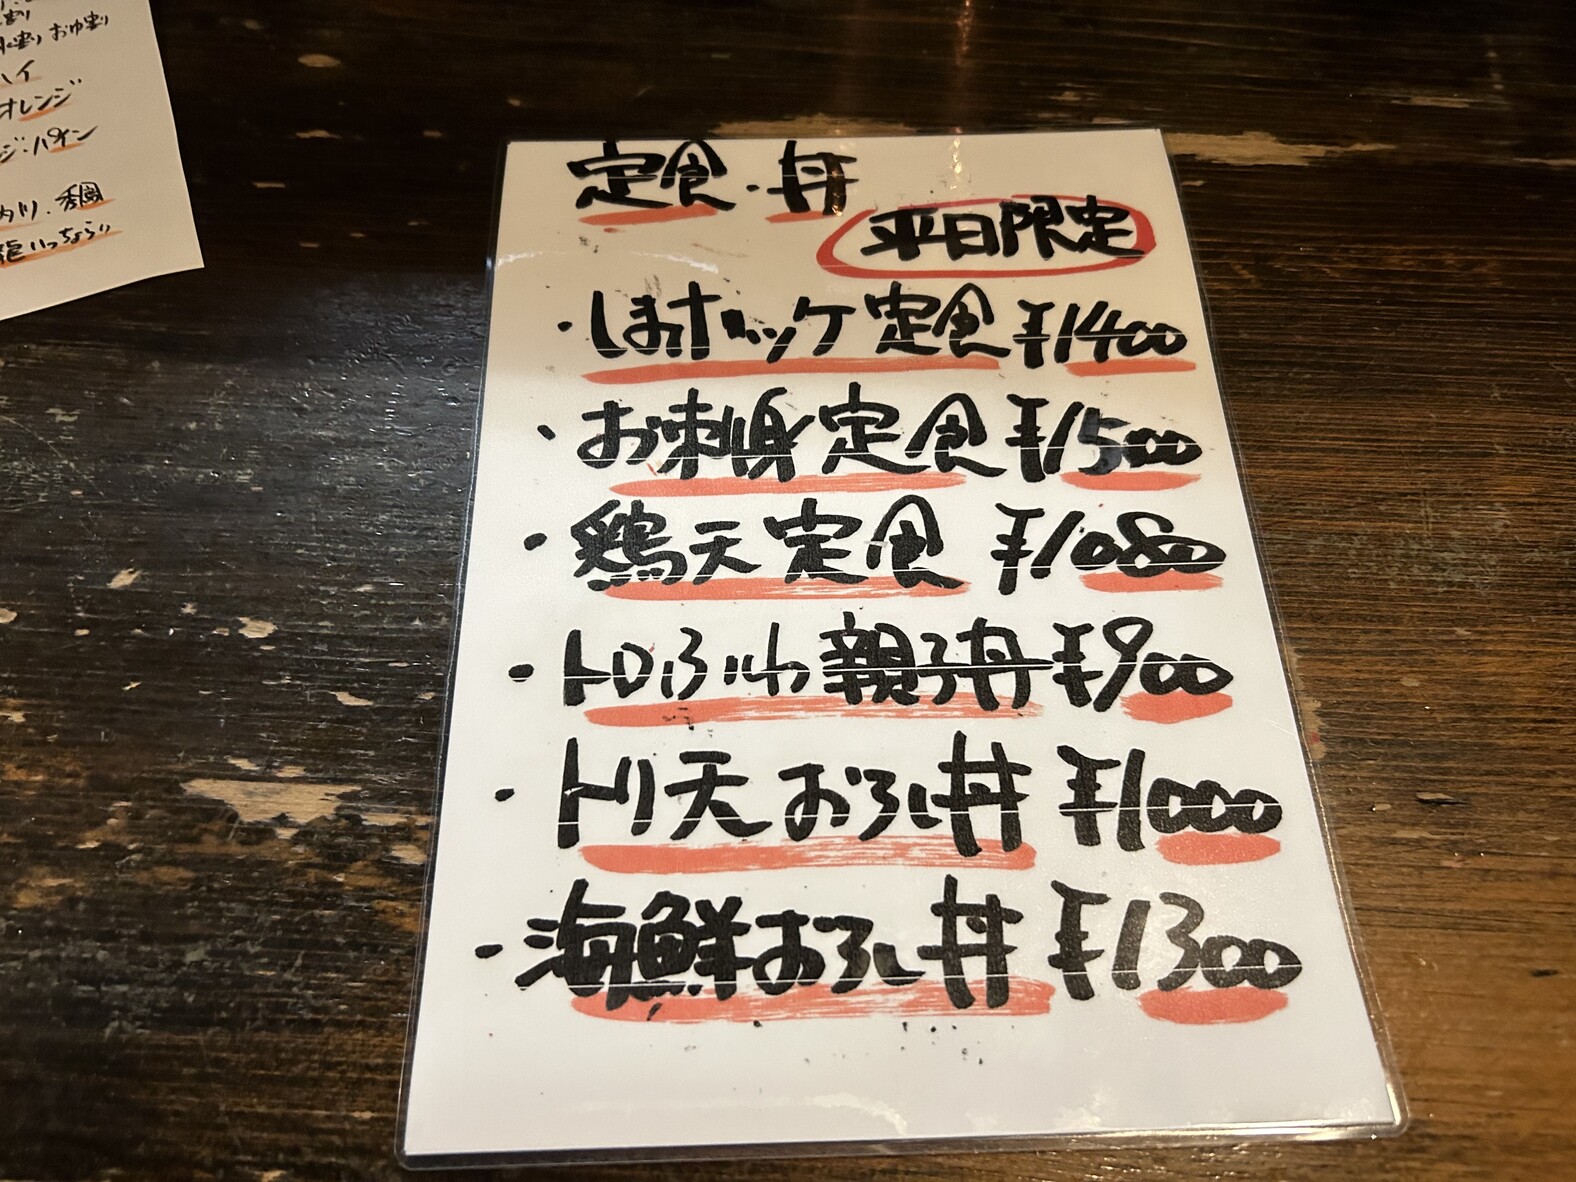 おゆ割
ハイ
オレンジ
ジ・パイン
定食・丼
平日限定
・しまホッケ定食 ¥1400
・お刺身定食 ¥1500
・鶏天定食 ¥1080
・トロふわ親子丼 ¥900
・トリ天おろし丼 ¥1000
・海鮮おろし丼 ¥1300